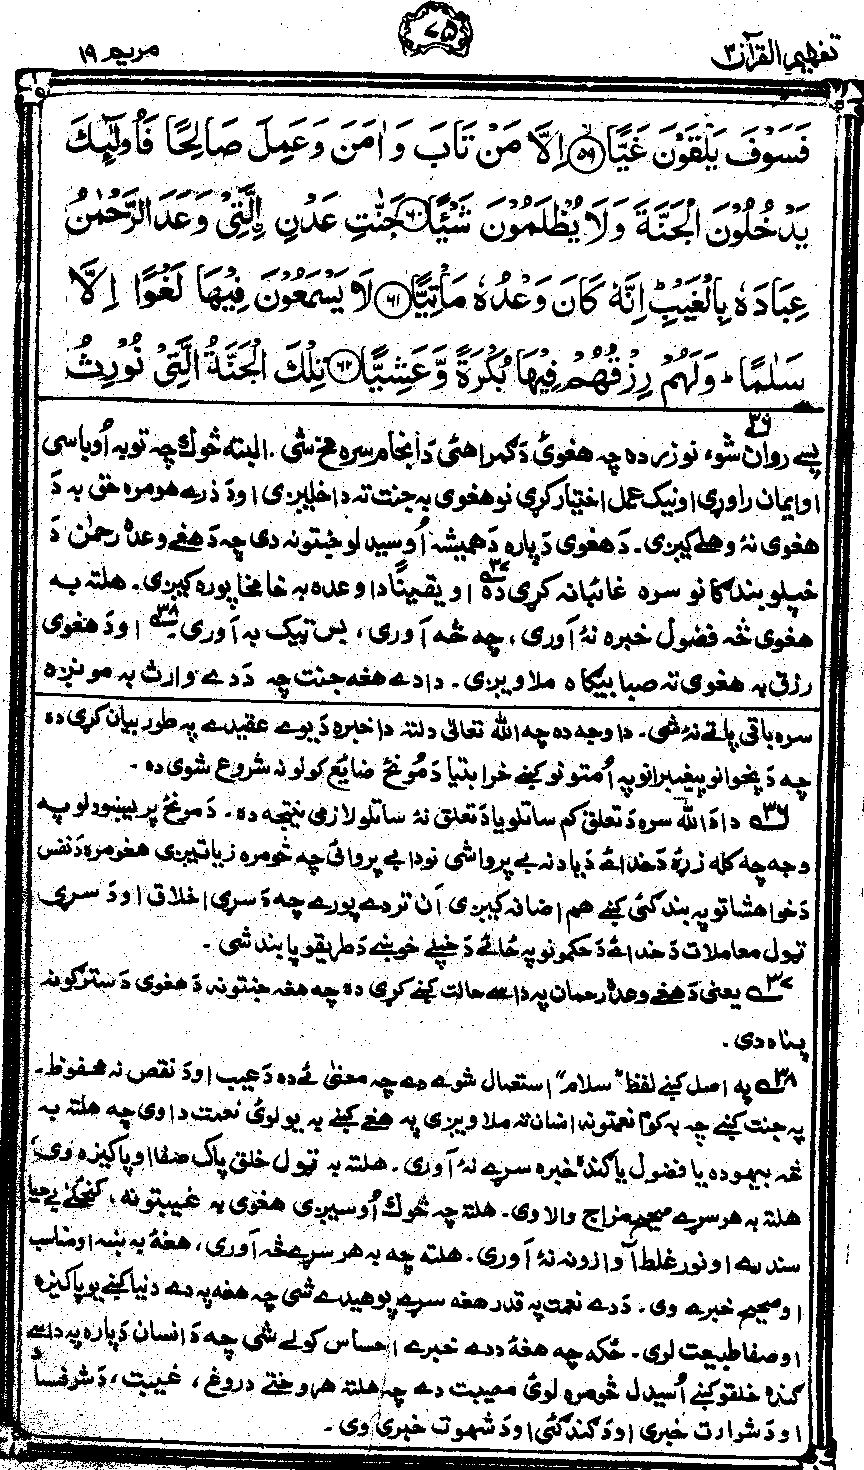 تفهیم القرآن ۳
۷۵
مریم ۱۹
فَسَوْفَ يَلْقَوْنَ غَيًّا ﴿۵۹﴾ اِلَّا مَنْ تَابَ وَاٰمَنَ وَعَمِلَ صَالِحًا فَاُولٰٓئِكَ
يَدْخُلُوْنَ الْجَنَّةَ وَلَا يُظْلَمُوْنَ شَيْئًا ﴿۶۰﴾ جَنّٰتِ عَدْنِ ۨالَّتِيْ وَعَدَ الرَّحْمٰنُ
عِبَادَهٗ بِالْغَيْبِ ؕ اِنَّهٗ كَانَ وَعْدُهٗ مَاْتِيًّا ﴿۶۱﴾ لَا يَسْمَعُوْنَ فِيْهَا لَغْوًا اِلَّا
سَلٰمًا ؕ وَلَهُمْ رِزْقُهُمْ فِيْهَا بُكْرَةً وَّعَشِيًّا ﴿۶۲﴾ تِلْكَ الْجَنَّةُ الَّتِيْ نُوْرِثُ
پسے روان شوء نو زر ده چہ هغوئ دَ گمراهئ دَ انجام سره مخ شی. البتہ څوك چہ توبہ اُوباسی
او ایمان راوړی او نیک عمل اختیار کړی نو هغوی بہ جنت تہ داخلیږی او دَ ذرے هومره حق بہ دَ
هغوی نۂ وهلے کیږی. دَ هغوی دَپاره دَ همیشہ اُوسیدلو جنتونہ دی چہ دَ هغے وعده رحمٰن دَ
خپلو بندگانو سره غائبانہ کړی ده ۳۷ او یقینًا دا وعده بہ خامخا پوره کیږی. هلتہ بہ
هغوی څہ فضول خبره نۂ آوری، چہ څہ آوری، بس ټیک بہ آوری ۳۸ او دَ هغوی
رزق بہ هغوی تہ صبا بیگاه ملاویږی. دا دے هغہ جنت چہ دَ دے وارث بہ مونږه
سره باقی پاتے نۂ شی. دا وجہ ده چہ الله تعالیٰ دلتہ دا خبره دَ یوے عقیدے پہ طور بیان کړی ده
چہ دَ پخوانو پیغمبرانو پہ اُمتونو کښے خرابتیا دَ مُونځ ضایع کولو نہ شروع شوی ده.
۳۶ دا دَ الله سره دَ تعلق کم ساتلو یا دَ تعلق نۂ ساتلو لازمی نتیجہ ده. دَ مونځ پریښودلو پہ
وجہ چہ کلہ زړۂ دَ خدائے دَ یاد نہ بے پروا شی نو دا بے پروائی چہ څومره زیاتیږی هغومره دَ نفس
دَ خواهشاتو پہ بندگئی کښے هم اضافہ کیږی اَن تر دے پورے چہ دَ سړی اخلاق او دَ سړی
ټول معاملات دَ خدائے دَ حکمونو پہ ځائے دَ خپلے خوښے دَ طریقو پابند شی.
۳۷ یعنی دَ هغے وعده رحمان پہ داسے حالت کښے کړی ده چہ هغہ جنتونہ دَ هغوی دَ سترگو نہ
پناه دی.
۳۸ پہ اصل کښے لفظ "سلام" استعمال شوے دے چہ معنیٰ ئے ده دَ عیب او دَ نقص نہ محفوظ.
پہ جنت کښے چہ بہ کوم نعمتونہ انسان تہ ملاویږی پہ هغے کښے بہ یو لوئ نعمت دا وی چہ هلتہ بہ
څہ بیهوده یا فضول یا گنده خبره سړے نۂ آوری. هلتہ بہ ټول خلق پاک صفا او پاکیزه وی
هلتہ بہ هر سړے صحیح مزاج والا وی. هلتہ چہ څوك اُوسیږی هغوی بہ غیبتونہ، کنځلے بے حیا
سندرے او نور غلط آوازونہ نۂ آوری. هلتہ چہ بہ هر سړے څہ آوری، هغہ بہ ښہ او مناسب
او صحیح خبرے وی. دَ دے نعمت پہ قدر هغہ سړے پوهیدے شی چہ هغہ پہ دے دنیا کښے یو پاکیزه
او صفا طبیعت لری. ځکہ چہ هغہ دَ دے خبرے احساس کولے شی چہ دَ انسان دَپاره پہ داسے
گنده خلقو کښے اُسیدل څومره لوئ مصیبت دے چہ هلتہ هر وختے دروغ، غیبت، دَ شر فساد
او دَ شرارت خبری او دَ گندگئی او دَ شهوت خبری وی.